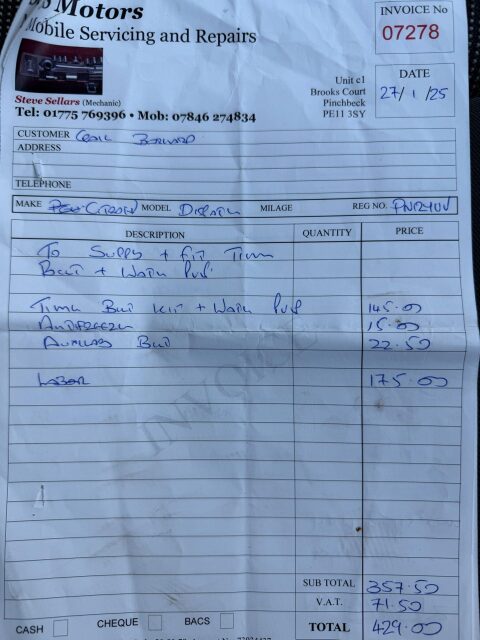 Motors
Mobile Servicing and Repairs
INVOICE No
07278
DATE
27/1/25
Unit c1
Brooks Court
Pinchbeck
PE11 3SY
Steve Sellars (Mechanic)
Tel: 01775 769396 • Mob: 07846 274834
CUSTOMER
ADDRESS
TELEPHONE
MAKE Citroen MODEL Dispatch MILAGE REG NO.
DESCRIPTION QUANTITY PRICE
To Supply + Fit Timing
Belt + Water Pump
Timing Belt Kit + Water Pump 145.00
Antifreeze 15.00
Auxiliary Belt 22.50
Labor 175.00
INVOICE
SUB TOTAL 357.50
V.A.T. 71.50
TOTAL 429.00
CASH CHEQUE BACS